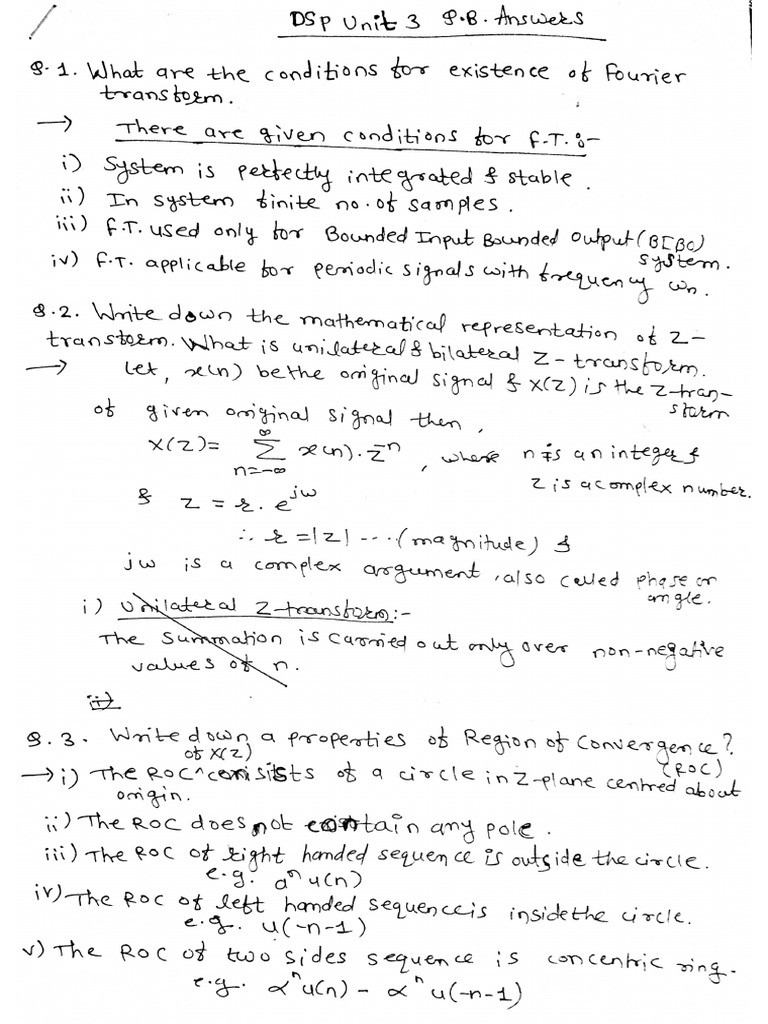 DSP Unit 3 Q.B. Answers
Q.1. What are the conditions for existence of Fourier
transform.
→ There are given conditions for F.T. :-
i) System is perfectly integrated & stable.
ii) In system finite no. of samples.
iii) F.T. used only for Bounded Input Bounded Output (BIBO)
system.
iv) F.T. applicable for periodic signals with frequency ωn.
Q.2. Write down the mathematical representation of Z-
transform. What is unilateral & bilateral Z-transform.
→ Let, x(n) be the original signal & X(Z) is the Z-tran-
sform
of given original signal then,
X(Z) = ∞ Σ n=-∞ x(n).Z⁻ⁿ, where n is an integer &
Z is a complex number.
& Z = r.e^jω
∴ r = |Z| ... (magnitude) &
jω is a complex argument, also called phase or
angle.
i) Unilateral Z-transform:-
The summation is carried out only over non-negative
values of n.
ii)
Q.3. Write down a properties of Region of Convergence?
(ROC)
→ i) The ROC of X(Z) consists of a circle in Z-plane centred about
origin.
ii) The ROC does not contain any pole.
iii) The ROC of right handed sequence is outside the circle.
e.g. aⁿ u(n)
iv) The ROC of left handed sequence is inside the circle.
e.g. u(-n-1)
v) The ROC of two sides sequence is concentric ring.
e.g. αⁿ u(n) - αⁿ u(-n-1)